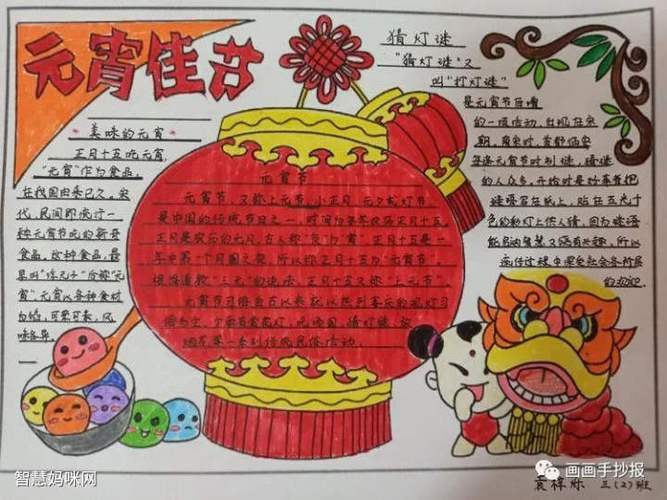 元宵佳节
美味的元宵
正月十五吃元宵,
"元宵"作为食品,
在我国由来已久。宋
代,民间即流行一
种元宵节吃的新奇
食品。这种食品,最
早叫"浮元子"后称"元
宵",元宵以各种食材
为馅,可荤可素,风
味各异。
元宵节
元宵节,又称上元节、小正月、元夕或灯节,
是中国的传统节日之一,时间为每年农历正月十五。
正月是农历的元月,古人称"夜"为"宵",正月十五是一
年中第一个月圆之夜,所以称正月十五为"元宵节"。
根据道教"三元"的说法,正月十五又称"上元节"。
元宵节习俗自古以来就以热烈喜庆的观灯习
俗为主。
猜灯谜
"猜灯谜"又
叫"打灯谜"
是元宵节后增
的一项活动,出现在宋
朝。南宋时,首都临安
每逢元宵节时制谜,猜谜
的人众多。开始时是好事者把
谜语写在纸上,贴在五光十
色的彩灯上供人猜。因为谜语
能启迪智慧又饶有兴趣,所以
流传过程中深受社会各阶层
的欢迎
三(2)班
智慧妈咪网
画画手抄报